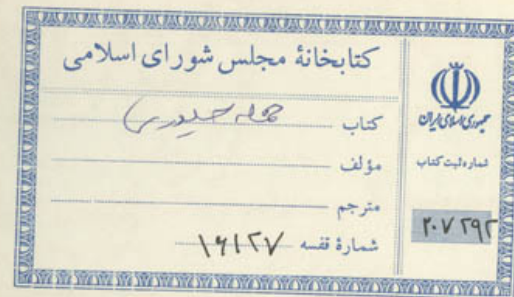 کتابخانهٔ مجلس شورای اسلامی
کتاب حمله حیدری
مؤلف
مترجم
شمارهٔ قفسه ۱۶۱۲۷
جمهوری اسلامی ایران
شماره ثبت کتاب
۲۰۷۲۹۲